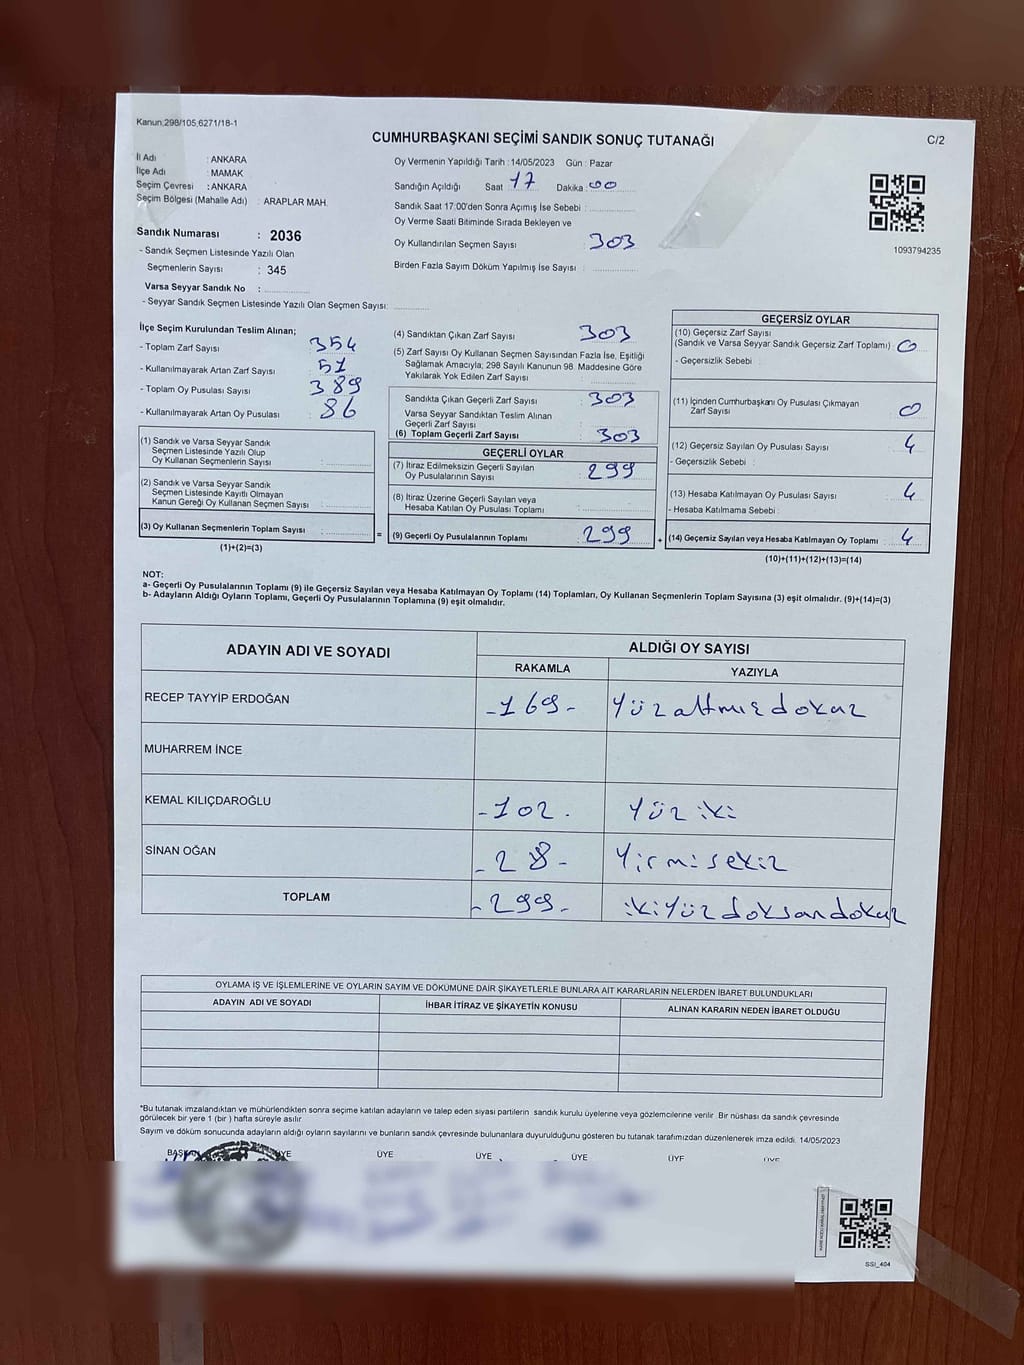 Kanun:298/105,6271/18-1
CUMHURBAŞKANI SEÇİMİ SANDIK SONUÇ TUTANAĞI
C/2
İl Adı : ANKARA
İlçe Adı : MAMAK
Seçim Çevresi : ANKARA
Seçim Bölgesi (Mahalle Adı) : ARAPLAR MAH.
Sandık Numarası : 2036
- Sandık Seçmen Listesinde Yazılı Olan
Seçmenlerin Sayısı : 345
Varsa Seyyar Sandık No :
- Seyyar Sandık Seçmen Listesinde Yazılı Olan Seçmen Sayısı:
Oy Vermenin Yapıldığı Tarih : 14/05/2023 Gün : Pazar
Sandığın Açıldığı Saat : 17 Dakika : 00
Sandık Saat 17:00'den Sonra Açımış İse Sebebi :
Oy Verme Saati Bitiminde Sırada Bekleyen ve
Oy Kullandırılan Seçmen Sayısı : 303
Birden Fazla Sayım Döküm Yapılmış İse Sayısı :
1093794235
İlçe Seçim Kurulundan Teslim Alınan;
- Toplam Zarf Sayısı : 354
- Kullanılmayarak Artan Zarf Sayısı : 51
- Toplam Oy Pusulası Sayısı : 389
- Kullanılmayarak Artan Oy Pusulası : 86
(1) Sandık ve Varsa Seyyar Sandık
Seçmen Listesinde Yazılı Olup
Oy Kullanan Seçmenlerin Sayısı :
(2) Sandık ve Varsa Seyyar Sandık
Seçmen Listesinde Kayıtlı Olmayan
Kanun Gereği Oy Kullanan Seçmen Sayısı :
(3) Oy Kullanan Seçmenlerin Toplam Sayısı =
(1)+(2)=(3)
(4) Sandıktan Çıkan Zarf Sayısı : 303
(5) Zarf Sayısı Oy Kullanan Seçmen Sayısından Fazla İse, Eşitliği
Sağlamak Amacıyla; 298 Sayılı Kanunun 98. Maddesine Göre
Yakılarak Yok Edilen Zarf Sayısı :
Sandıkta Çıkan Geçerli Zarf Sayısı : 303
Varsa Seyyar Sandıktan Teslim Alınan
Geçerli Zarf Sayısı :
(6) Toplam Geçerli Zarf Sayısı : 303
GEÇERLİ OYLAR
(7) İtiraz Edilmeksizin Geçerli Sayılan
Oy Pusulalarının Sayısı : 299
(8) İtiraz Üzerine Geçerli Sayılan veya
Hesaba Katılan Oy Pusulası Toplamı :
(9) Geçerli Oy Pusulalarının Toplamı : 299 +
GEÇERSİZ OYLAR
(10) Geçersiz Zarf Sayısı
(Sandık ve Varsa Seyyar Sandık Geçersiz Zarf Toplamı) : 0
- Geçersizlik Sebebi :
(11) İçinden Cumhurbaşkanı Oy Pusulası Çıkmayan
Zarf Sayısı : 0
(12) Geçersiz Sayılan Oy Pusulası Sayısı : 4
- Geçersizlik Sebebi :
(13) Hesaba Katılmayan Oy Pusulası Sayısı : 4
- Hesaba Katılmama Sebebi :
(14) Geçersiz Sayılan veya Hesaba Katılmayan Oy Toplamı : 4
(10)+(11)+(12)+(13)=(14)
NOT:
a- Geçerli Oy Pusulalarının Toplamı (9) ile Geçersiz Sayılan veya Hesaba Katılmayan Oy Toplamı (14) Toplamları, Oy Kullanan Seçmenlerin Toplam Sayısına (3) eşit olmalıdır. (9)+(14)=(3)
b- Adayların Aldığı Oyların Toplamı, Geçerli Oy Pusulalarının Toplamına (9) eşit olmalıdır.
ADAYIN ADI VE SOYADI
ALDIĞI OY SAYISI
RAKAMLA
YAZIYLA
RECEP TAYYİP ERDOĞAN -169- Yüzaltmışdokuz
MUHARREM İNCE
KEMAL KILIÇDAROĞLU -102. Yüz iki
SİNAN OĞAN -28- Yirmisekiz
TOPLAM -299- ikiYüzdoksandokuz
OYLAMA İŞ VE İŞLEMLERİNE VE OYLARIN SAYIM VE DÖKÜMÜNE DAİR ŞİKAYETLERLE BUNLARA AİT KARARLARIN NELERDEN İBARET BULUNDUKLARI
ADAYIN ADI VE SOYADI
İHBAR İTİRAZ VE ŞİKAYETİN KONUSU
ALINAN KARARIN NEDEN İBARET OLDUĞU
*Bu tutanak imzalandıktan ve mühürlendikten sonra seçime katılan adayların ve talep eden siyasi partilerin sandık kurulu üyelerine veya gözlemcilerine verilir. Bir nüshası da sandık çevresinde
görülecek bir yere 1 (bir ) hafta süreyle asılır.
Sayım ve döküm sonucunda adayların aldığı oyların sayılarını ve bunların sandık çevresinde bulunanlara duyurulduğunu gösteren bu tutanak tarafımızdan düzenlenerek imza edildi. 14/05/2023
ÜYE ÜYE ÜYE ÜYE ÜYE
SSİ_404